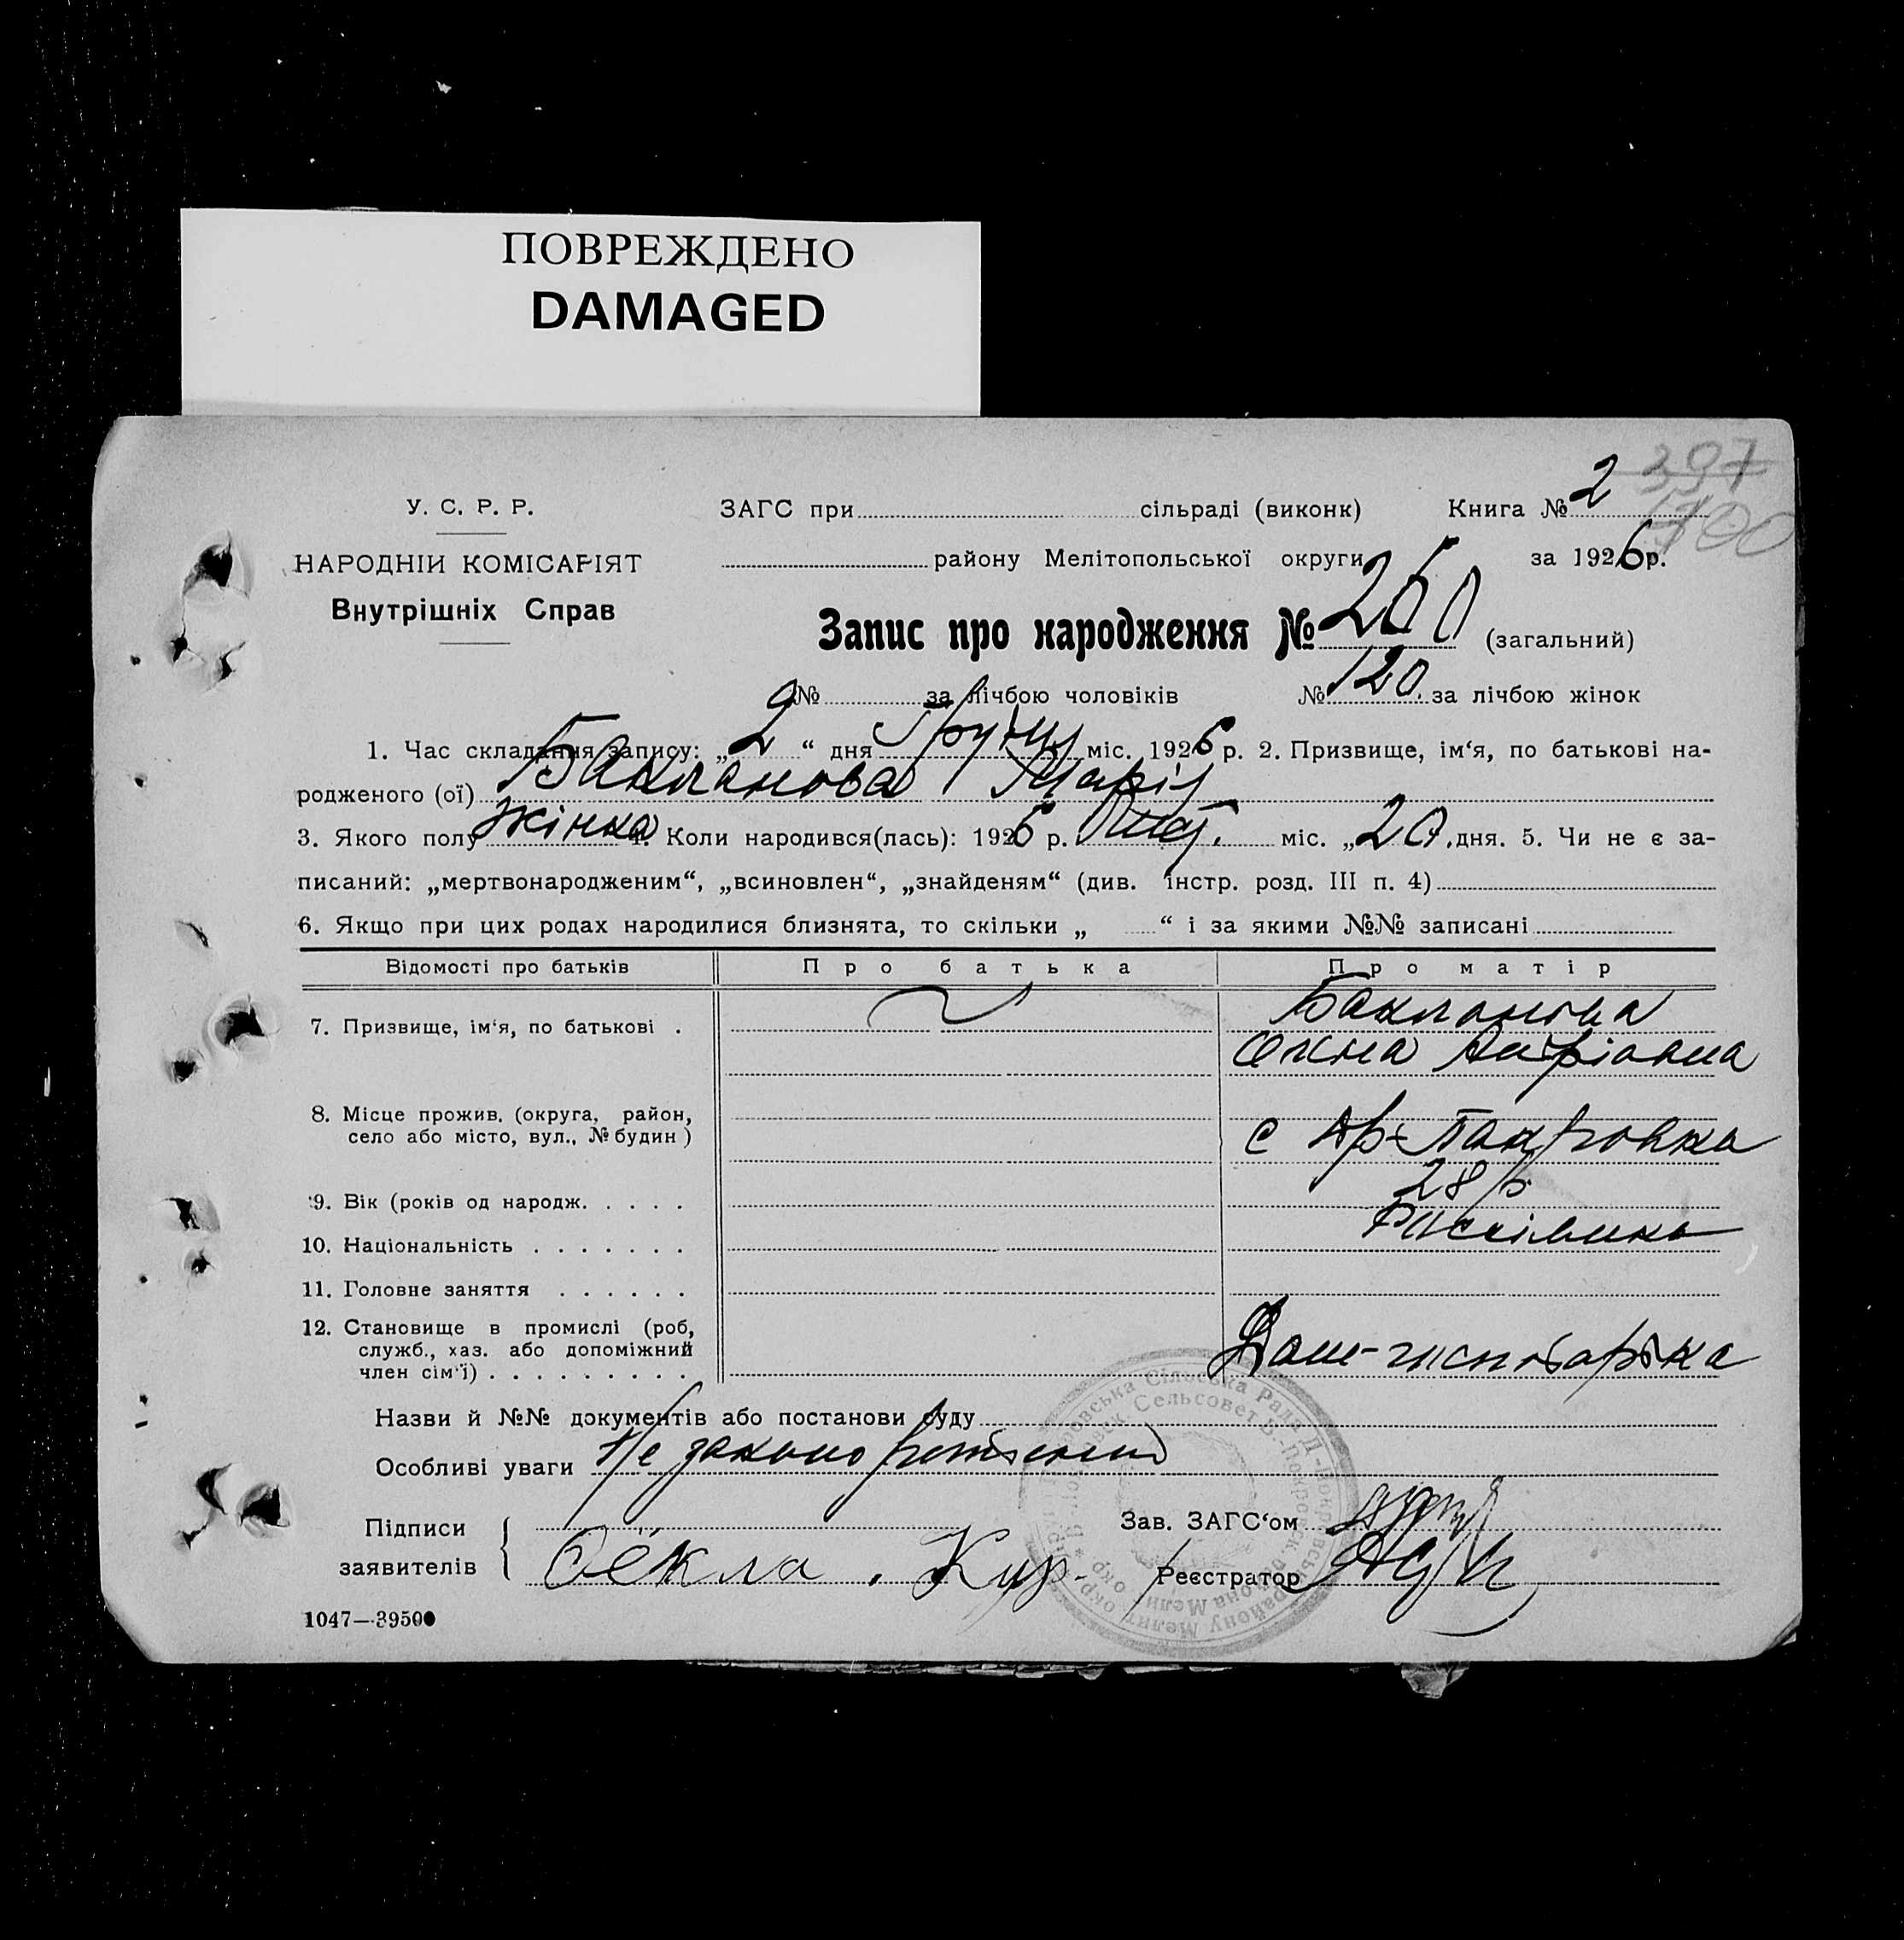 ПОВРЕЖДЕНО
DAMAGED
2 397
700
У. С. Р. Р.
ЗАГС при сільраді (виконк) Книга №
НАРОДНІЙ КОМІСАРІЯТ
району Мелітопольської округи за 1926 р.
Внутрішніх Справ
Запис про народження № 260 (загальний)
№ за лічбою чоловіків № 120 за лічбою жінок
1. Час складання запису: „2“ дня Грудня міс. 1926 р. 2. Призвище, ім‘я, по батькові на-
родженого (ої) Бакланова Марія
3. Якого полу жінка 4. Коли народився(лась): 1926 р. міс. „20 дня. 5. Чи не є за-
писаний: „мертвонародженим“, „всиновлен“, „знайденям“ (див. інстр. розд. III п. 4)
6. Якщо при цих родах народилися близнята, то скільки „ “ і за якими №№ записані
Відомості про батьків Про батька Про матір
7. Призвище, ім‘я, по батькові . Бакланова
8. Місце прожив. (округа, район,
село або місто, вул., № будин ) с
9. Вік (років од народж. . . . . 28 р
10. Національність . . . . . . .
11. Головне заняття . . . . . .
12. Становище в промислі (роб,
служб., хаз. або допоміжний
член сім‘ї) . . . . . . . . . Дом-господарка
Назви й №№ документів або постанови суду
Особливі уваги
Підписи Зав. ЗАГС‘ом
заявителів Фёкла . Кир. Реєстратор
1047—39500